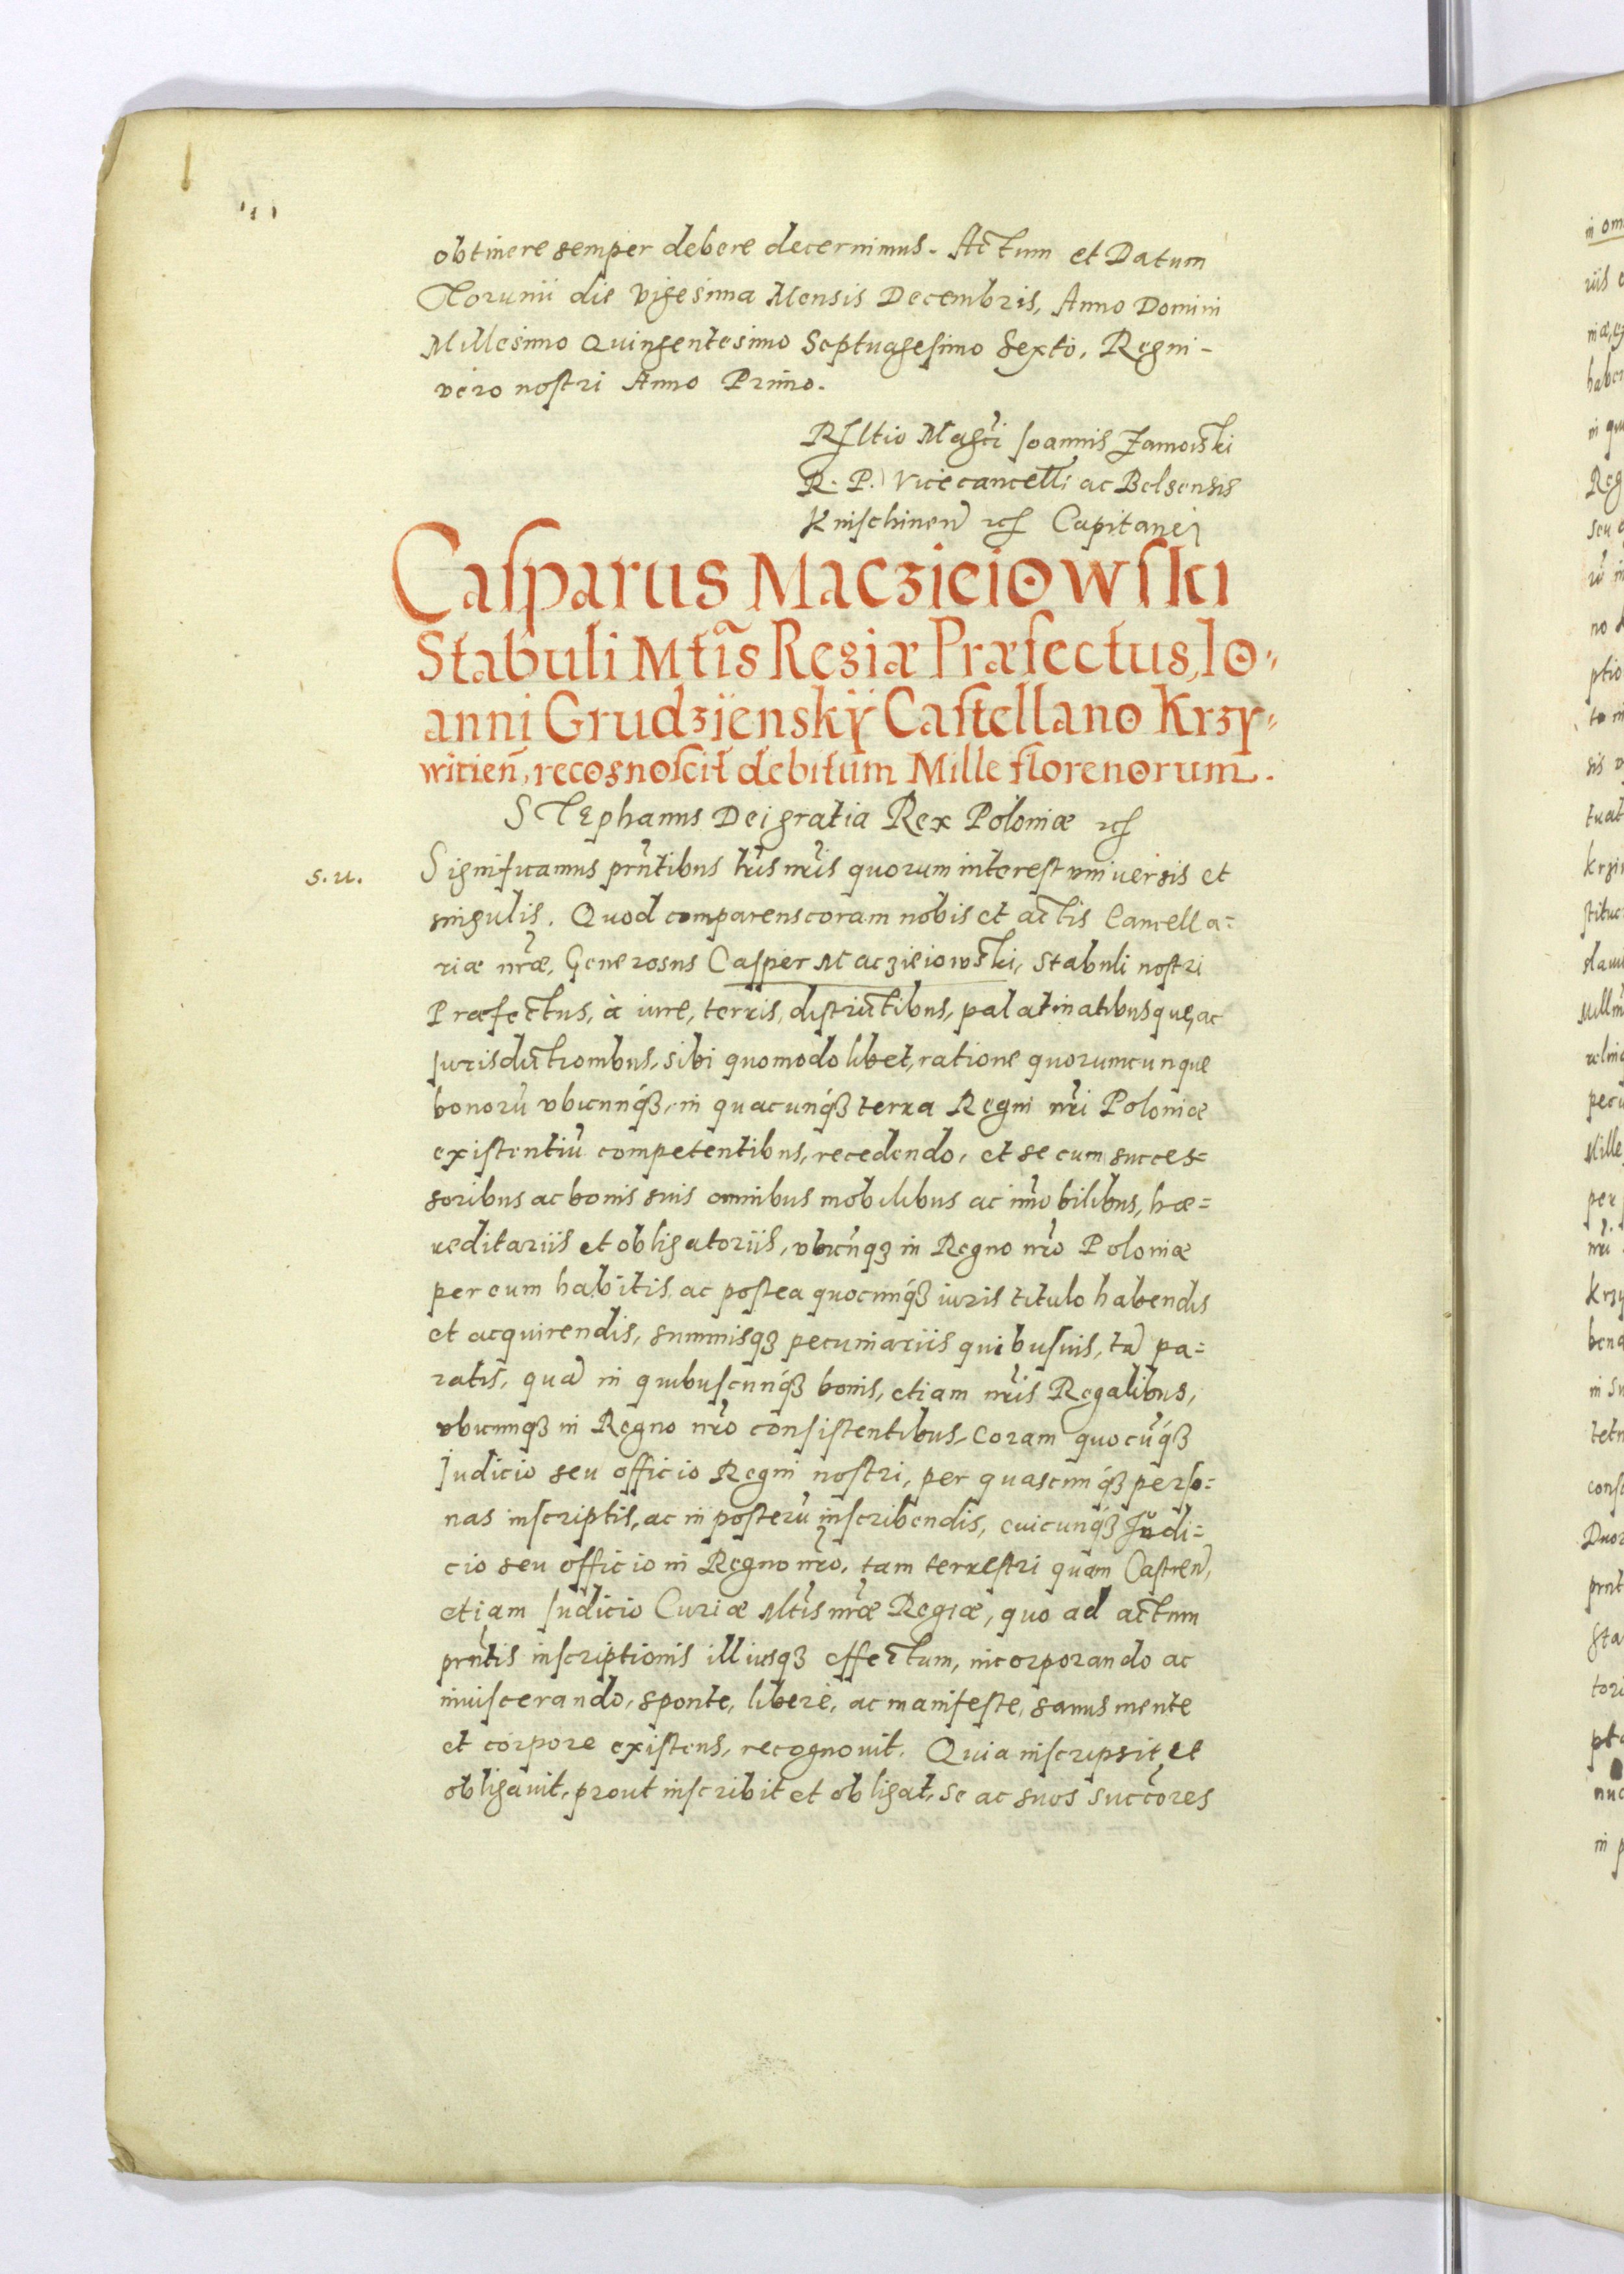 obtinere semper debere decernimus. Actum et Datum
Torunii die vigesima Mensis Decembris, Anno Domini
Millesimo Quingentesimo Septuagesimo Sexto, Regni
vero nostri Anno Primo.
Rltio Magci Joannis Zamoiski
R. P. Vicecancelli ac Belsensis
Knischinen etc Capitanei
Casparus Macziciowski
Stabuli Mtis Regiæ Præfectus, Io-
anni Grudziensky Castellano Krzy-
wicien, recognoscit debitum Mille florenorum.
Stephanus Dei gratia Rex Poloniæ etc
s.u.
Significamus prntibus lris nris quorum interest universis et
singulis. Quod comparens coram nobis et actis Cancella=
riæ nræ, Generosus Casper Maczieiowski, Stabuli nostri
Præfectus, à iure, terris, districtibus, palatinatibusque, ac
Jurisdictionibus, sibi quomodolibet, ratione quorumcunque
bonorũ vbicunqȝ, in quacunqȝ terra Regni nri Poloniæ
existentiũ competentibus, recedendo, et se cum succes=
soribus ac bonis suis omnibus mobilibus ac imobilibus, hæ=
reditariis et obligatoriis, vbicũqȝ in Regno nro Poloniæ
per eum habitis, ac postea quocunqȝ iuris titulo habendis
et acquirendis, summisqȝ pecuniariis quibusuis, tã pa=
ratis, quã in quibuscunqȝ bonis, etiam nris Regalibus,
vbicunqȝ in Regno nro consistentibus, coram quocũqȝ
Judicio seu officio Regni nostri, per quascunqȝ perso=
nas inscriptis, ac in posterũ inscribendis, cuicunqȝ Judi=
cio seu officio in Regno nro, tam terrestri quam Castren,
etiam Judicio Curiæ Mtis nræ Regiæ, quo ad actum
prntis inscriptionis illiusqȝ effectum, incorporando ac
inuiscerando, sponte, liberè, ac manifeste, sanus mente
et corpore existens, recognouit. Quia inscripsit et
obligauit, prout inscribit et obligat, se ac suos succores